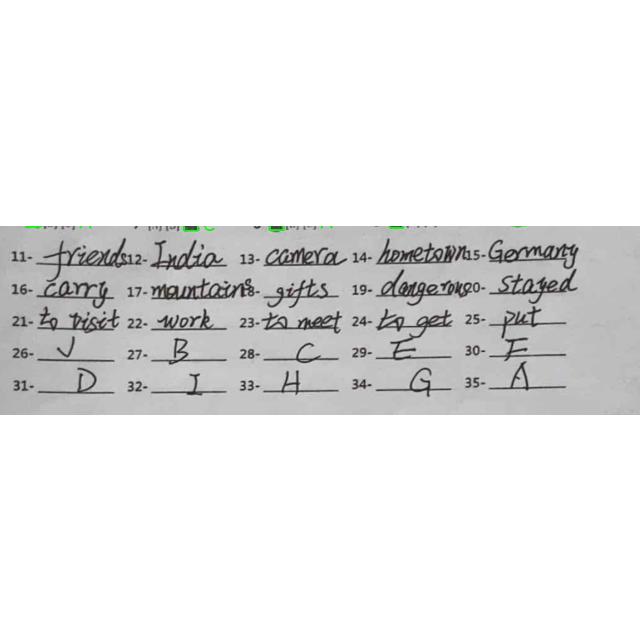 11- friends 12- India 13- camera 14- hometown 15- Germany
16- carry 17- mountains 18- gifts 19- dangerous 20- stayed
21- to visit 22- work 23- to meet 24- to get 25- put
26- J 27- B 28- C 29- E 30- F
31- D 32- I 33- H 34- G 35- A